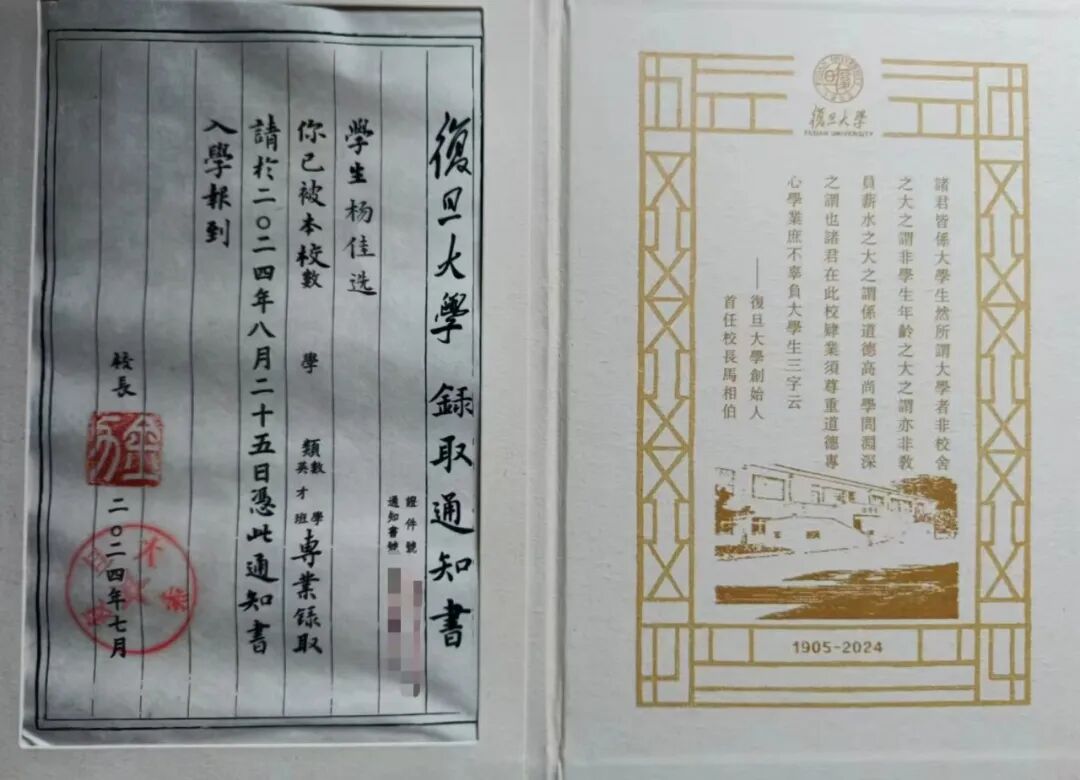 復旦大學 録取通知書
證件號
通知書號
學生杨佳选
你已被本校數 學 類數學英才班專業録取
請於二〇二四年八月二十五日憑此通知書
入學報到
校長
二〇二四年七月
復旦大學
FUDAN UNIVERSITY
諸君皆係大學生然所謂大學者非校舍
之大之謂非學生年齡之大之謂亦非教
員薪水之大之謂係道德高尚學問淵深
之謂也諸君在此校肄業須尊重道德專
心學業庶不辜負大學生三字云
——復旦大學創始人
首任校長馬相伯
1905-2024